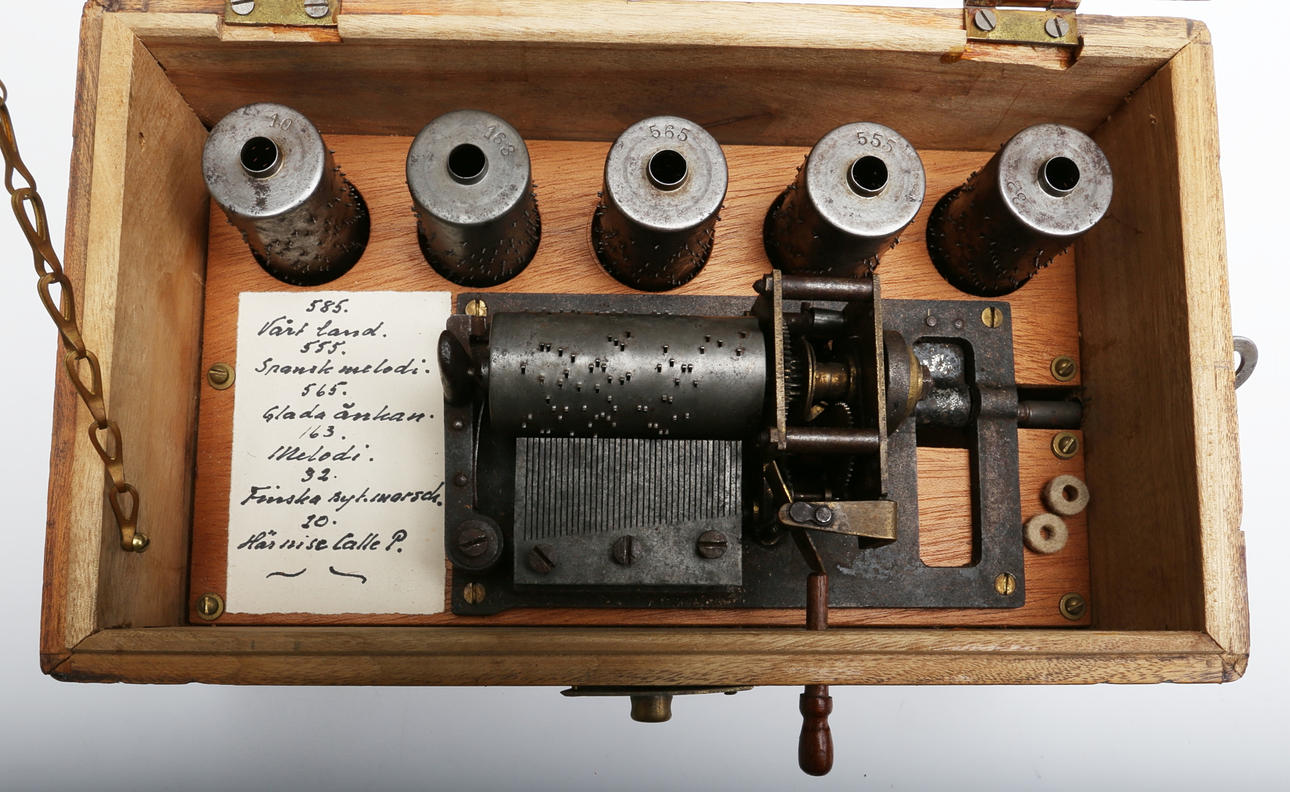 10
163
565
555
32
585.
Vårt land.
555.
Spansk melodi.
565.
Glada änkan.
163.
Melodi.
32.
Finska ryt.marsch.
10.
Här nise Calle P.